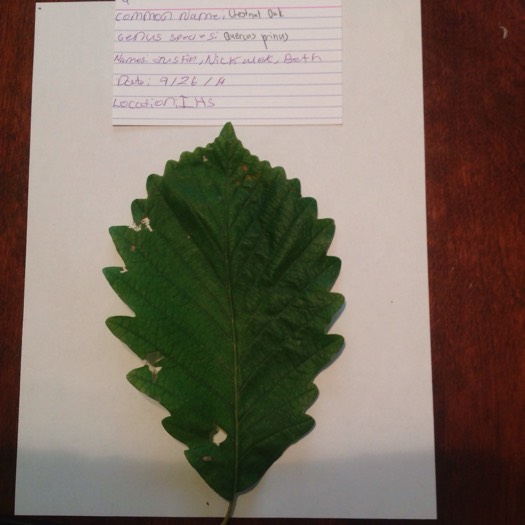 Common Name: Chestnut Oak
Genus species: Quercus prinus
Names: Justin, Nick, Beth
Date: 9/26/14
Location: IHS